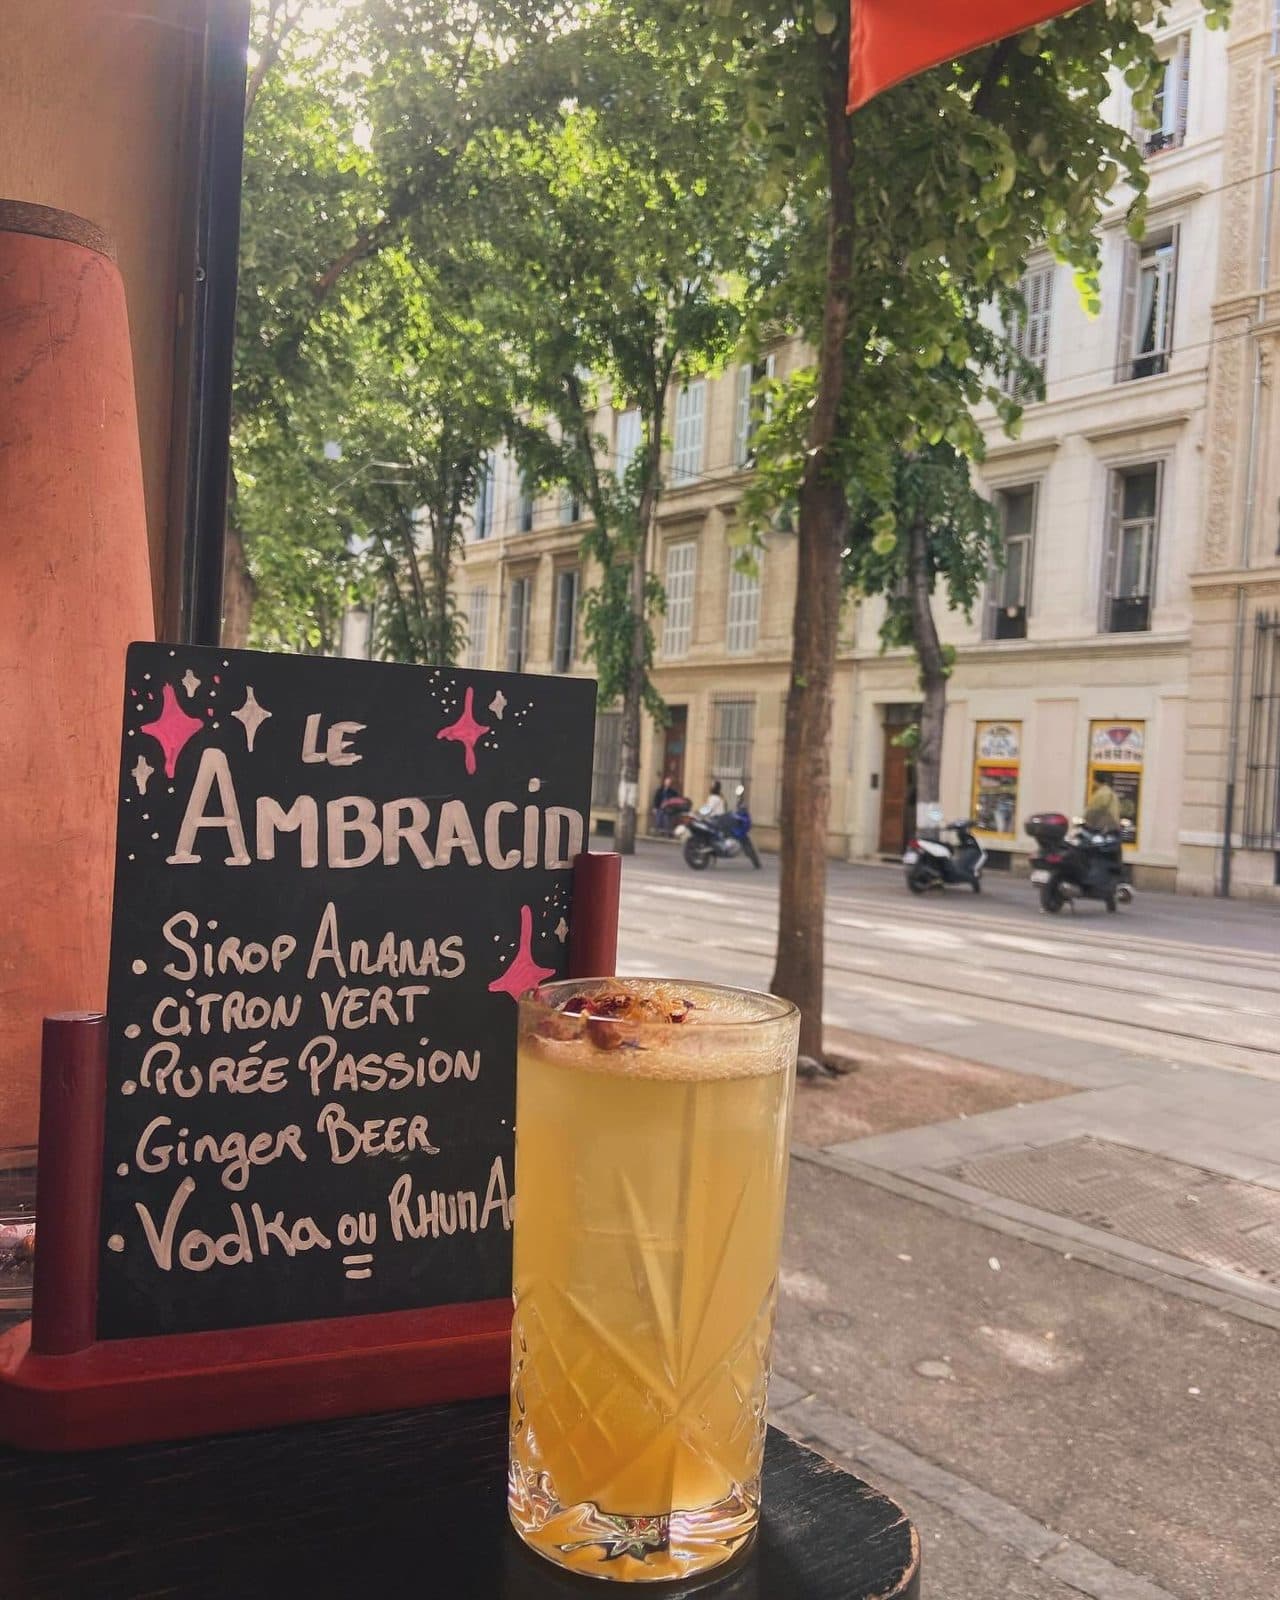 LE
AMBRACID
. SIROP ANANAS
. CITRON VERT
. PURÉE PASSION
. Ginger BEER
. Vodka ou RHUM